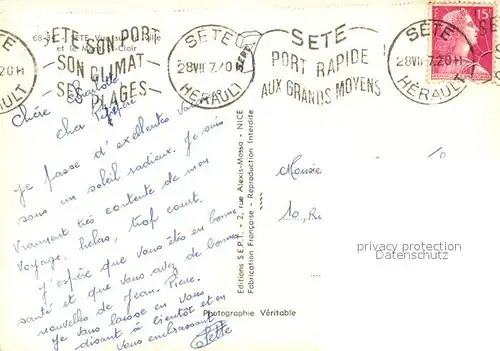 SETE - Vue sur la Ville
et le Mont St-Clair
SETE SON PORT
SON CLIMAT
SES PLAGES
SETE
28 VII
HERAULT
SETE
PORT RAPIDE
AUX GRANDS MOYENS
SETE
28 VII
HERAULT
15F
Chère Charlotte
cher
Je passe d'excellentes vacances
sous un soleil radieux. Je suis
vraiment très contente de mon
voyage, hélas, trop court.
J'espère que vous êtes en bonne
santé et que vous avez de bonnes
nouvelles de Jean-Pierre.
Je vous laisse en vous
disant à bientôt et en
vous embrassant
Editions S.E.P.T. - 2, rue Alexis-Mossa - NICE
Fabrication Française - Reproduction Interdite
SEPT
Photographie Véritable
10, Ru
privacy protection
Datenschutz